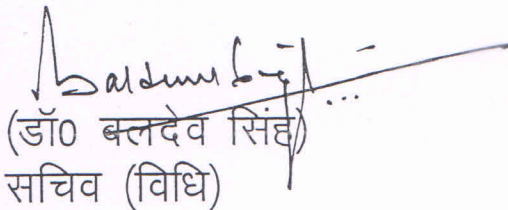 (डॉ0 बलदेव सिंह)
सचिव (विधि)